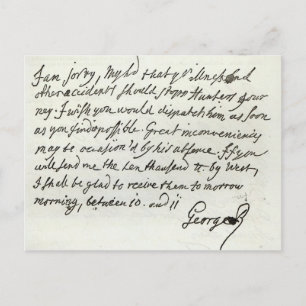 I am sorry, Myld that yr illness and
other accidents should stopp Hunters Jour
ney. I wish you would dispatch him as soon
as you find possible. Great inconveniencies
may be occasion'd by his absence. If you
will send me the ten thousand ll. by West,
I shall be glad to receive them to morrow
morning, between 10. and 11
George R